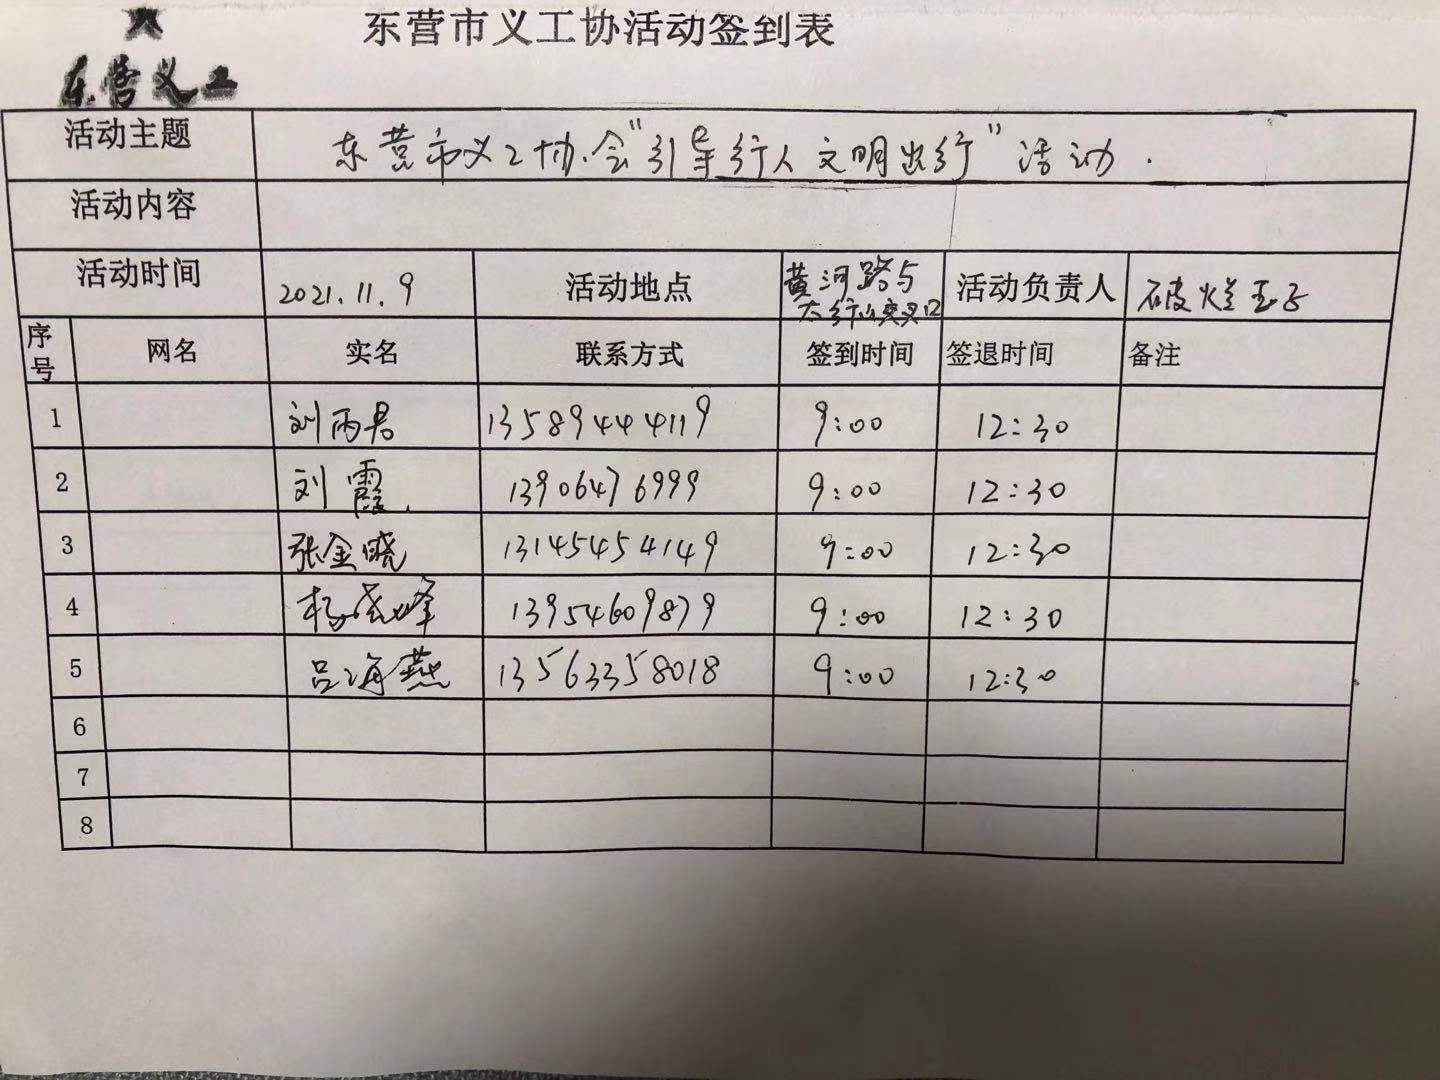 东营市义工协活动签到表
东营义工
活动主题 东营市义工协会“引导行人文明出行”活动.
活动内容
活动时间 2021.11.9 活动地点 黄河路与太行山交叉口 活动负责人 破烂王子
序号 网名 实名 联系方式 签到时间 签退时间 备注
1 刘雨君 13589444119 9:00 12:30
2 刘霞. 13906476999 9:00 12:30
3 张金晓 13145454149 9:00 12:30
4 杨峰 13954609879 9:00 12:30
5 吕海燕 13563358018 9:00 12:30
6
7
8